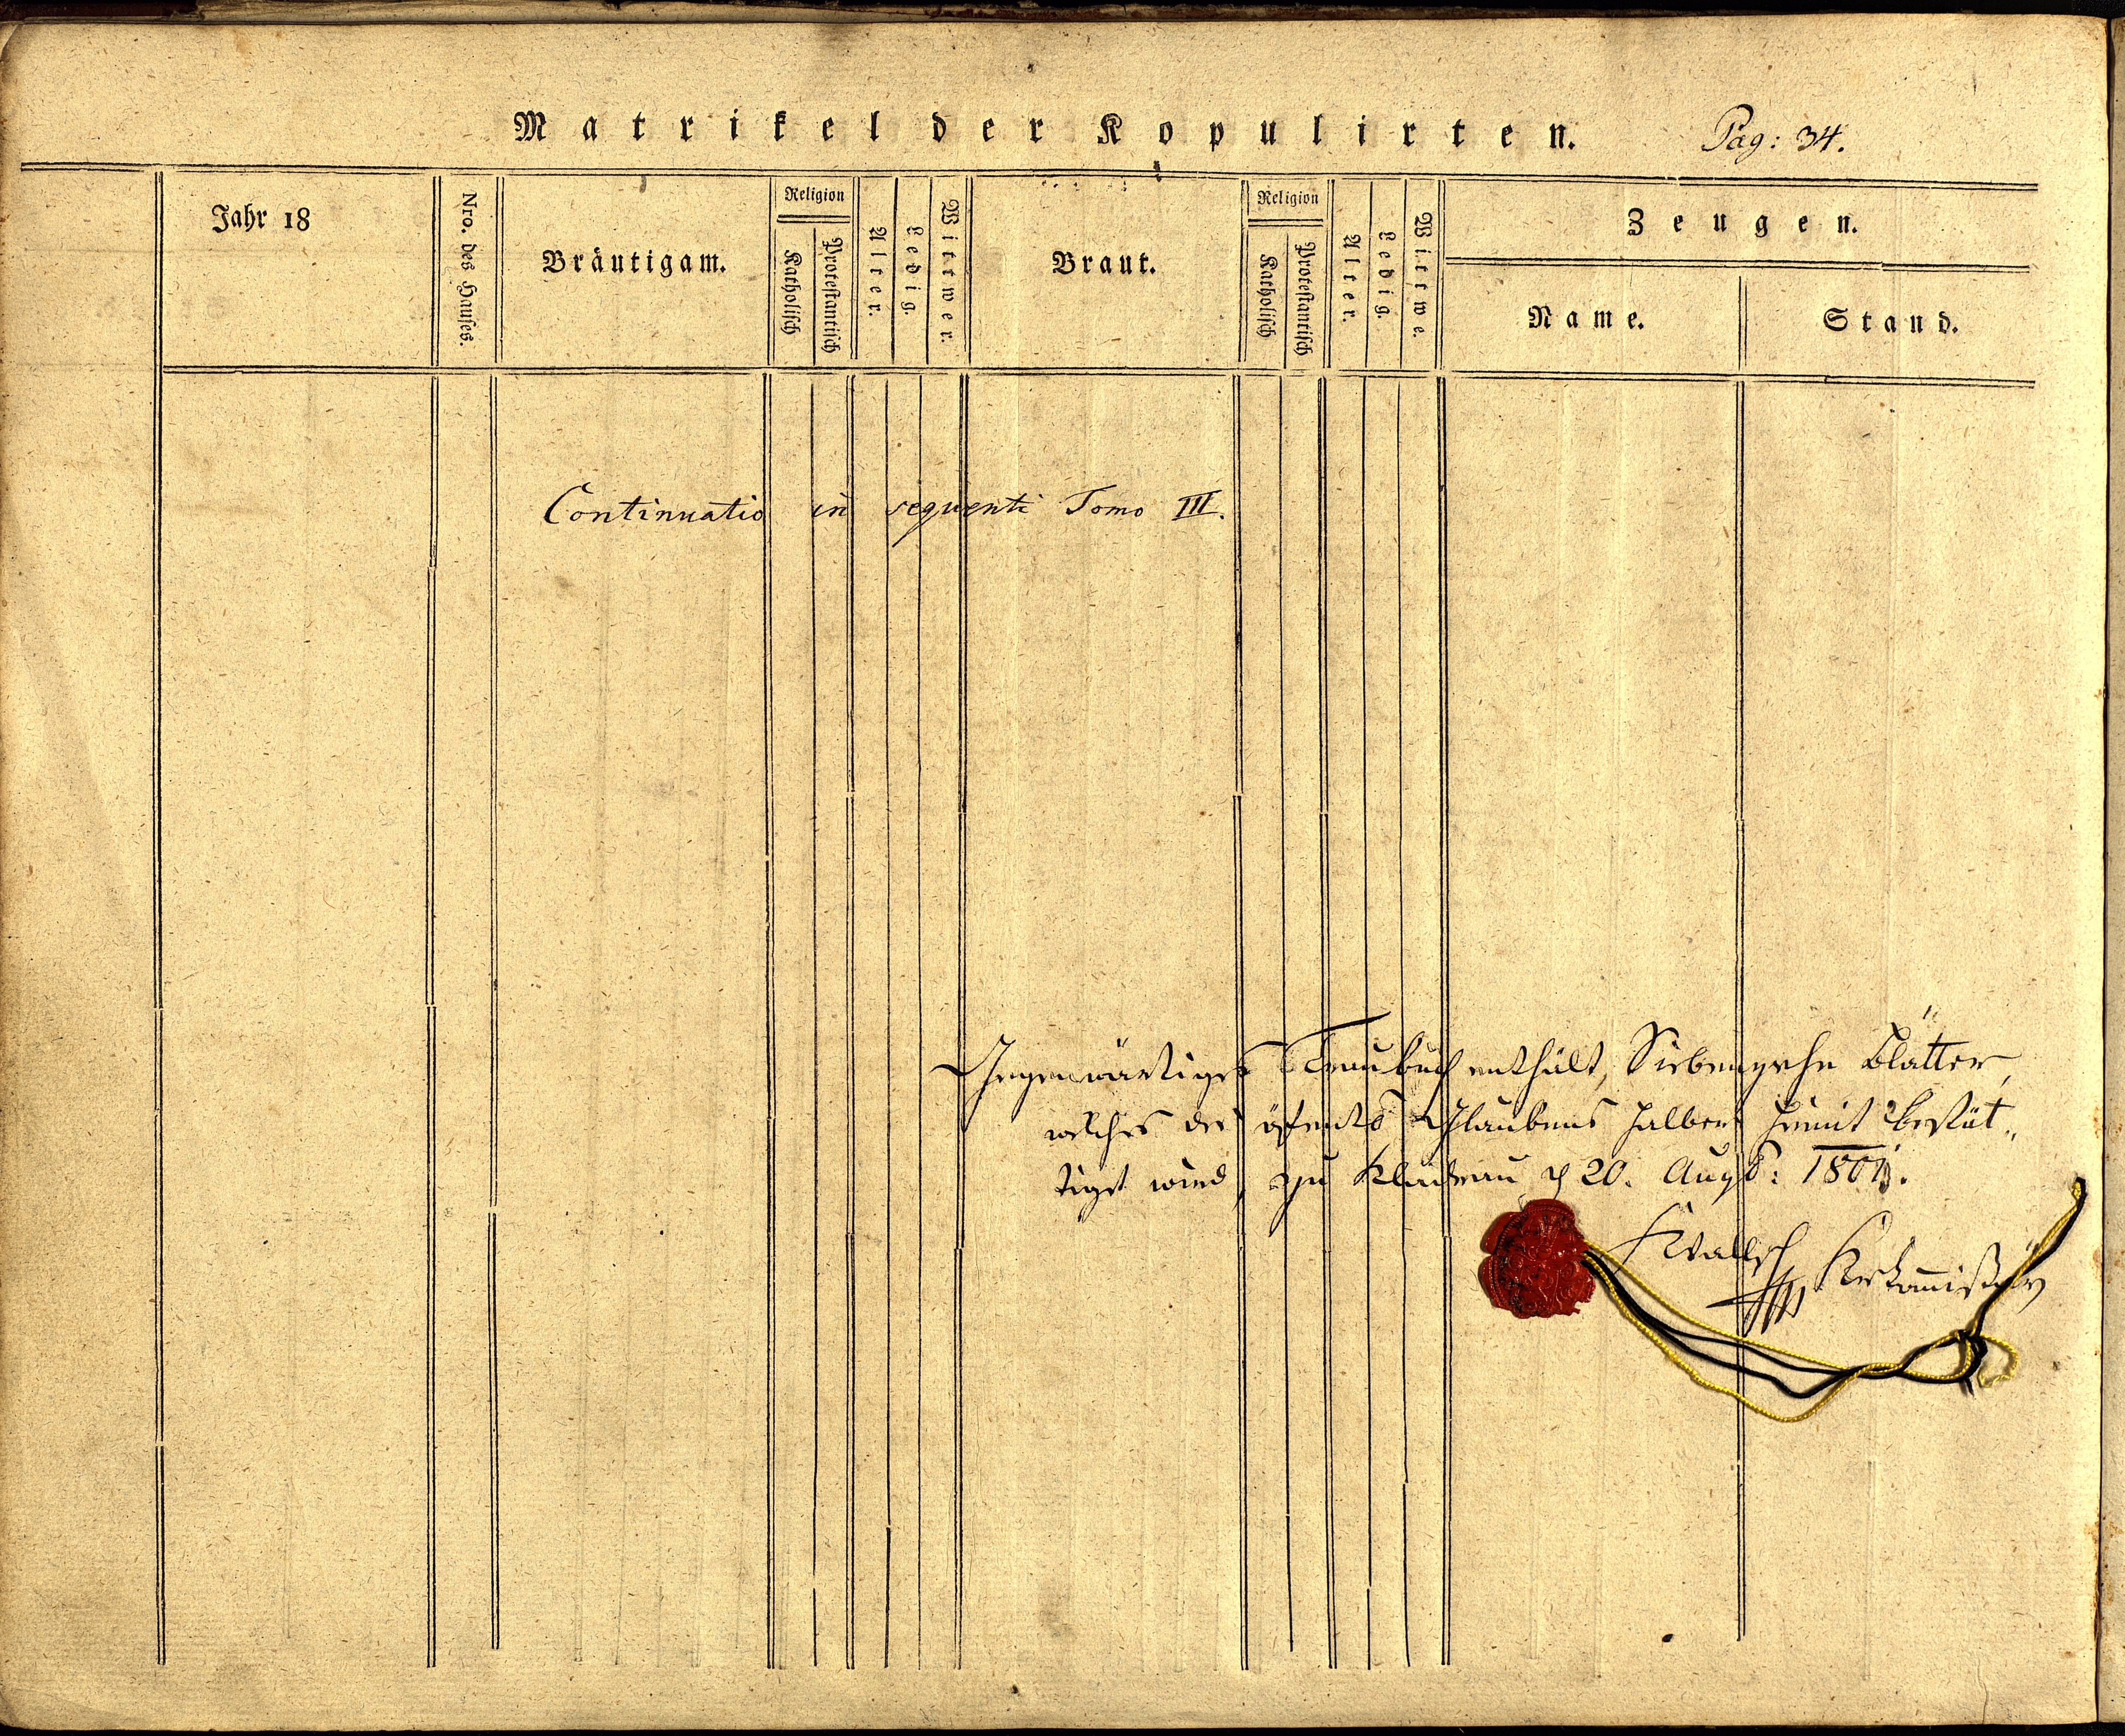 Matrikel der Kopulirten.
Pag: 34.
Jahr 18
Nro. des Hauses.
Bräutigam.
Religion
Katholisch
Protestantisch
Alter.
Ledig.
Wittwer.
Braut.
Religion
Katholisch
Protestantisch
Alter.
Ledig.
Wittwe.
Zeugen.
Name.
Stand.
Continuatio in sequenti Tomo III.
Gegenwärtiges Traubuch enthält, Siebenzehn Blätter,
welches des öffentl Glaubens halber hiemit bestät„
tiget wird, zu 20. Aug